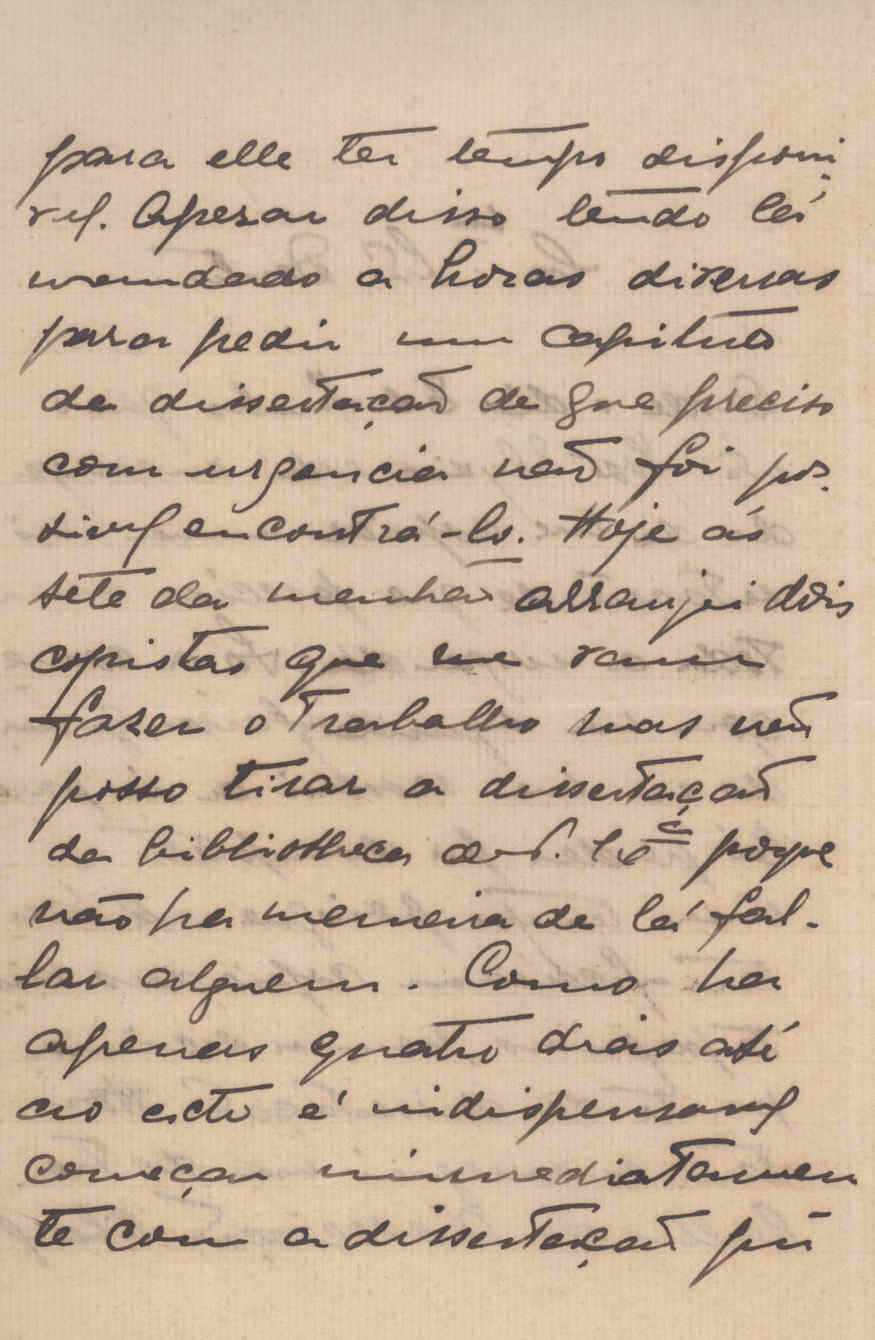 para elle ter tempo disponi-
vel. Apezar disso tendo lá
mandado a horas diversas
para pedir um capitulo
da dissertação de que preciso
com urgancia não foi pos-
sivel encontrá-lo. Hoje ás
sete da manhã arranjei dois
copistas que me vam
fazer o trabalho mas não
posso tirar a dissertação
da bibliotheca de V. Exª porque
não ha maneira de lá fal-
lar alguem. Como ha
apenas quatro dias até
ao acto é indispensavel
começar immediatamen
te com a dissertação